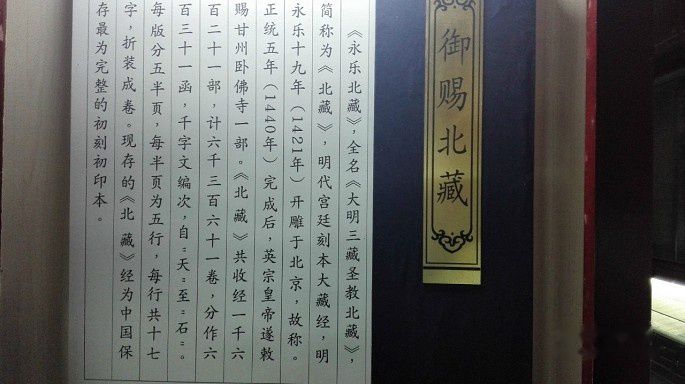 御赐北藏
《永乐北藏》，全名《大明三藏圣教北藏》，
简称为《北藏》，明代宫廷刻本大藏经，明
永乐十九年（1421年）开雕于北京，故称。
正统五年（1440年）完成后，英宗皇帝遂敕
赐甘州卧佛寺一部。《北藏》共收经一千六
百二十一部，计六千三百六十一卷，分作六
百三十一函，千字文编次，自“天”至“石”。
每版分五半页，每半页为五行，每行共十七
字，折装成卷。现存的《北藏》经为中国保
存最为完整的初刻初印本。